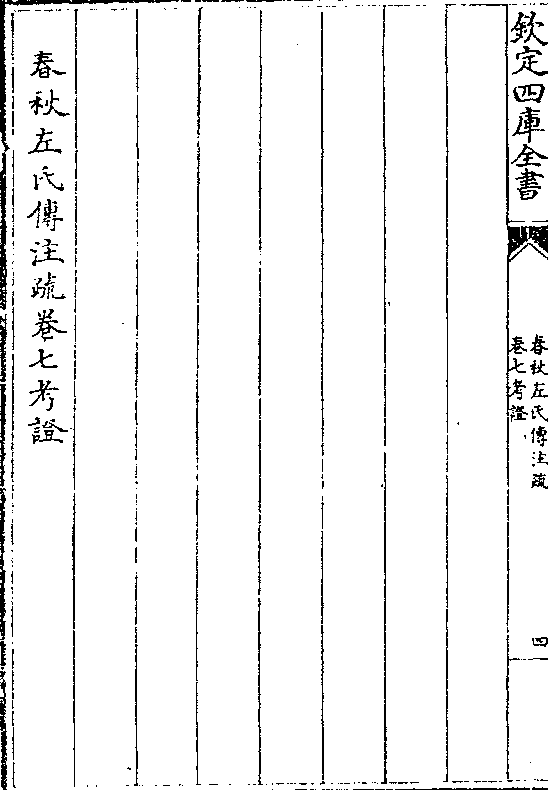 欽定四庫全書
春秋左氏傳注疏
卷七考證
四
春秋左氏傳注疏卷七考證